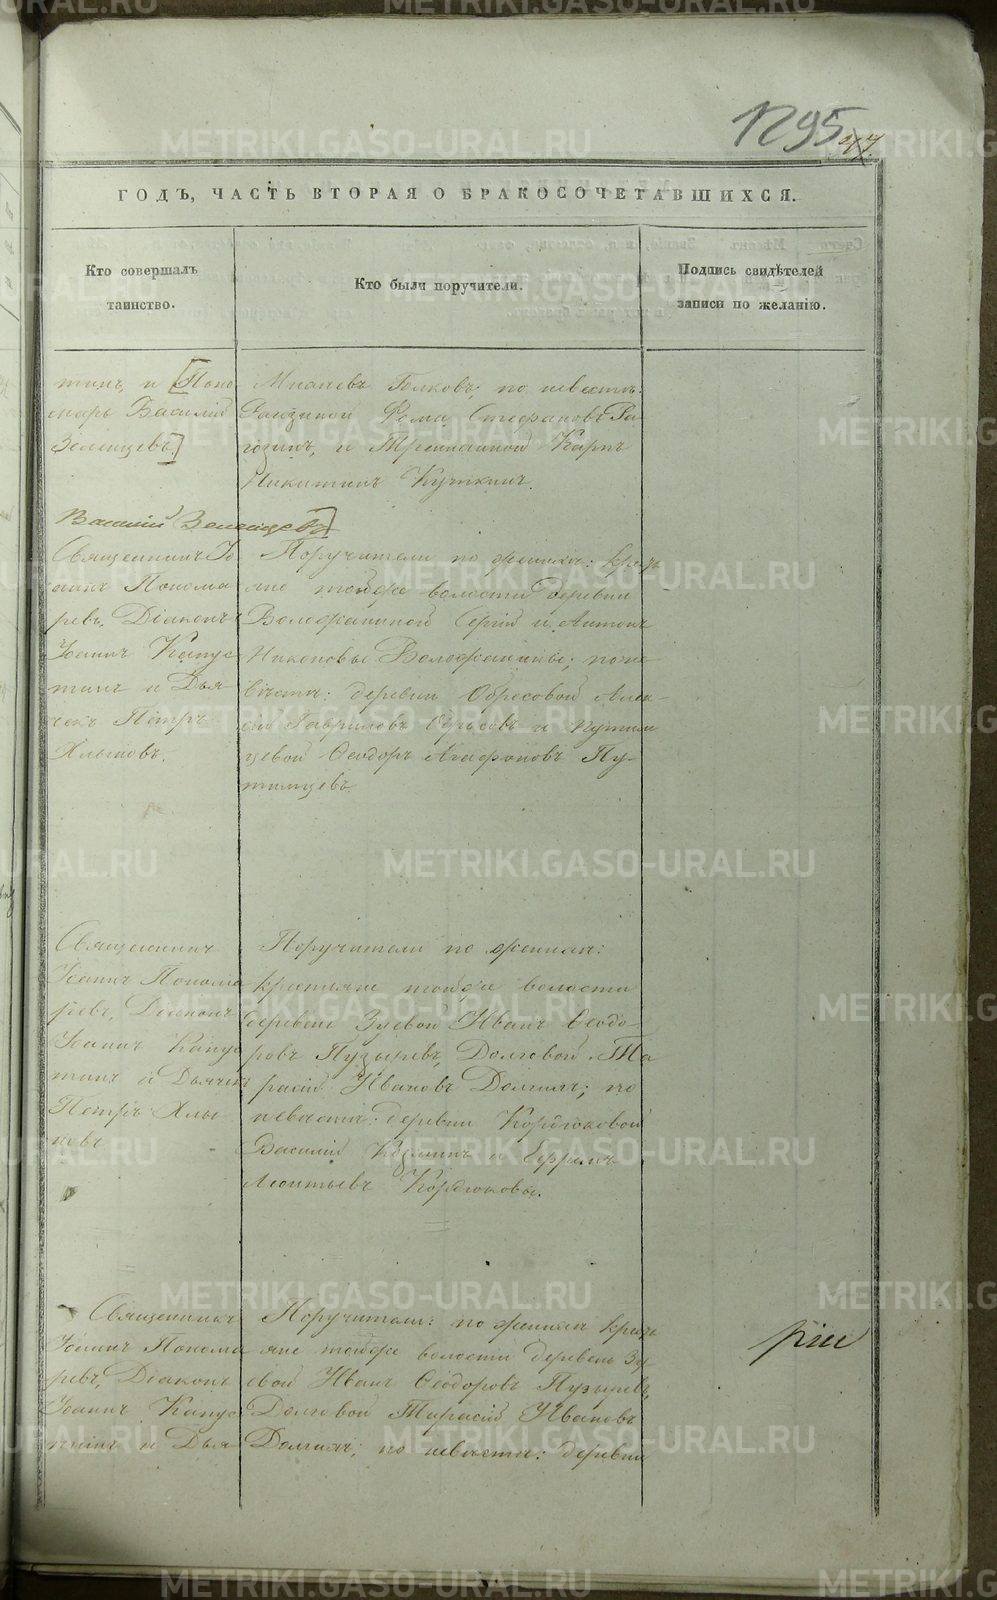 METRIKI.GASO-URAL.RU
1295
47.
ГОДЪ, ЧАСТЬ ВТОРАЯ О БРАКОСОЧЕТАВШИХСЯ.
Кто совершалъ
таинство.
Кто были поручители.
Подпись свидѣтелей
записи по желанію.
тинъ, и [Поно
марь Василій
Зеленцевъ.]
по невѣстѣ:
Ѳома Стефановъ Ра-
гозинъ, и Карпъ
Никитинъ Куткинъ.
Василій Зеленцевъ]
Священникъ Іо
аннъ Понома
ревъ, Діаконъ
Іоаннъ Капус
тинъ и Дья-
чекъ Петръ
Хлыновъ.
Поручители по женихѣ: кресть
яне тойже волости деревни
Сергій и Антонъ
Никоновы Воложанины; по не
вѣстѣ: деревни Обрѣсовой Алек-
сій Гавриловъ и Путим
цевой Ѳеодоръ Агафоновъ Пу-
тимцевъ.
Священникъ
Іоаннъ Понома
ревъ, Діаконъ
Іоаннъ Капус
тинъ и Дьячекъ
Петръ Хлы
новъ
Поручители по женихѣ:
крестьяне тойже волости
деревень Зуевой Иванъ Ѳеодо-
ровъ Пузыревъ, Долговой Та
расій Ивановъ Долгихъ; по
невѣстѣ: деревни Кордюковой
Василій Козминъ и Ефремъ
Леонтьевъ Кордюковы.
Священникъ
Іоаннъ Понома
ревъ, Діаконъ
Іоаннъ Капус
тинъ и Дья-
Поручители: по женихѣ кресть
яне тойже волости деревень Зу
евой Иванъ Ѳеодоровъ Пузыревъ,
Долговой Тарасій Ивановъ
Долгихъ; по невѣстѣ: деревни